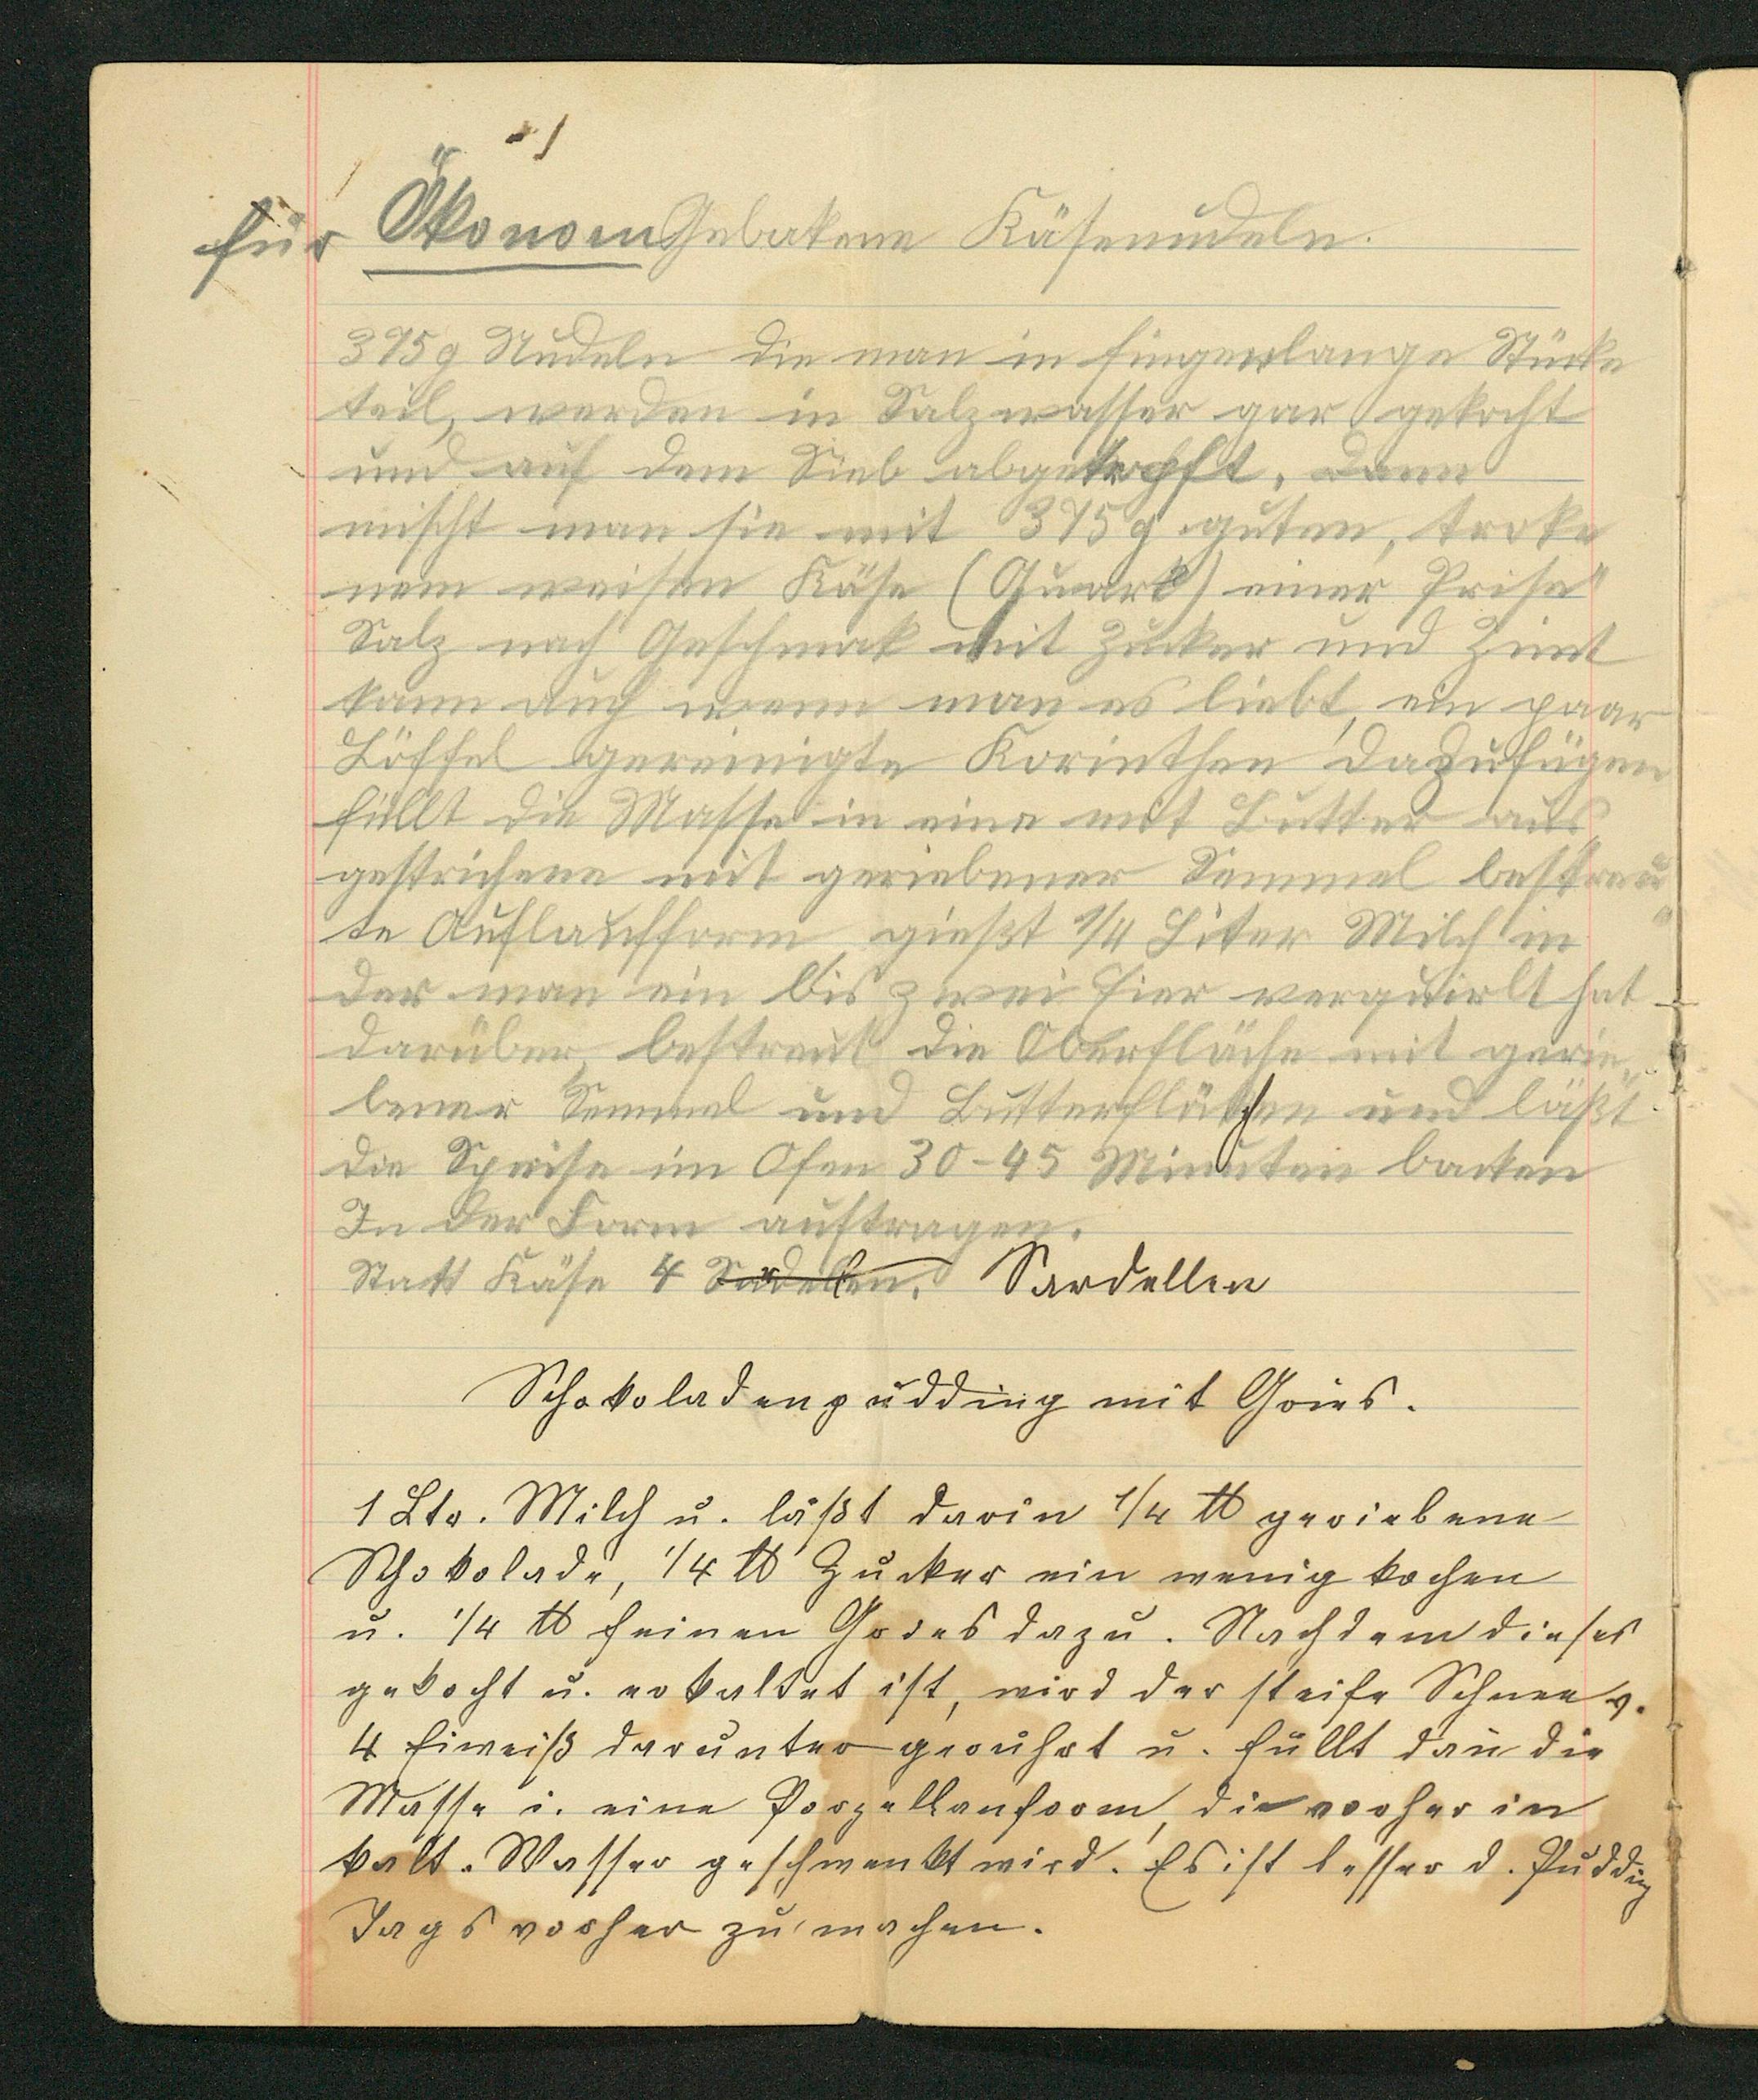 für Ökonom Gebakene Käsenudeln.
375 g Nudeln die man in fingerlange Stücke
teil, werden in Salzwasser gar gekocht
und auf dem Sieb abgetropft, dann
mischt man sie mit 375 g guten, troke
nem weisen Käse (Quark) einer Prise
Salz nach Geschmak mit Zucker und Zimt
kann auch wenn man es liebt, ein paar
Löffel gereinigte Korinthen dazufügen
füllt die Masse in eine mit Butter aus
gestrichene mit geriebener Semmel bestreu
te Auflaufform, gießt 1/4 Liter Milch in
der man ein bis zwei Eier verquirlt hat
darüber, bestreut die Oberfläche mit gerie„
bener Semmel und Butterflökchen und läßt
die Speise im Ofen 30-45 Minuten backen
In der Form auftragen.
Statt Käse 4 Sardellen. Sardellen
Schokoladenpudding mit Gries.
1 Ltr. Milch u. läßt darin 1/4 ℔ geriebene
Schokolade, 1/4 ℔ Zucker ein wenig kochen
u. 1/4 ℔ feinen Gries dazu. Nachdem dieses
gekocht u. erkaltet ist, wird der steife Schnee v.
4 Eiweiß darunter gerührt u. füllt dan̄ die
Masse i. eine Porzellanform, die vorher in
kalt. Wasser geschwenkt wird. Es ist besser d. Pudding
Tags vorher zu machen.